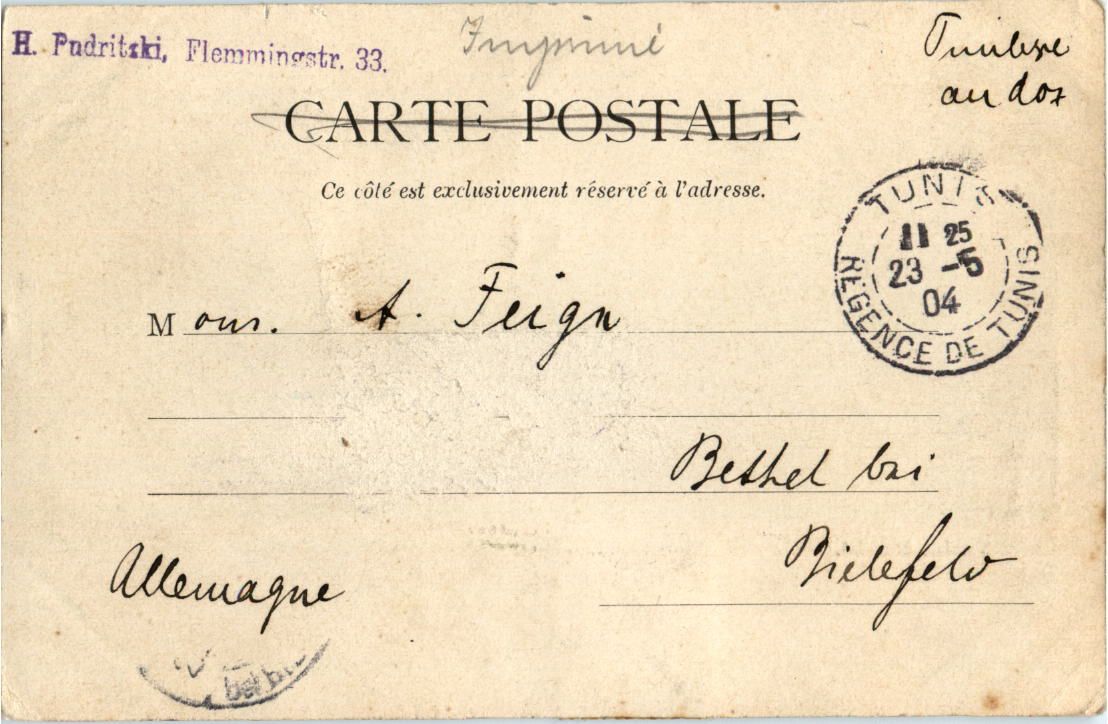 H. Pudritzki, Flemmingstr. 33.
Imprimé
Timbre
au dos
CARTE POSTALE
Ce côté est exclusivement réservé à l'adresse.
TUNIS
11 25
23 -5
04
REGENCE DE TUNIS
Mons. A. Feign
Bethel bei
Bielefeld
Allemagne